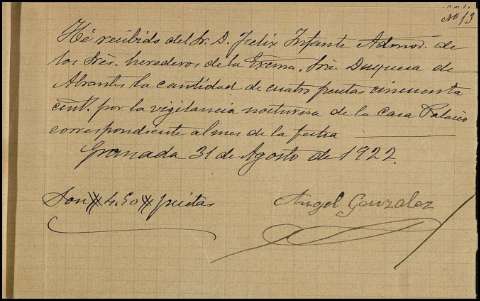 Nº 13
Hé recibido del Sr. D. Felix Infante Admor. de
los Sres. herederos de la Excma. Sra. Duquesa de
Abrantes la cantidad de cuatro pesetas cincuenta
cent. por la vigilancia nocturna de la Casa Palacio
correspondiente al mes de la fecha
Granada 31 de Agosto de 1922.
Son # 4.50 # pesetas
Angel Gonzalez